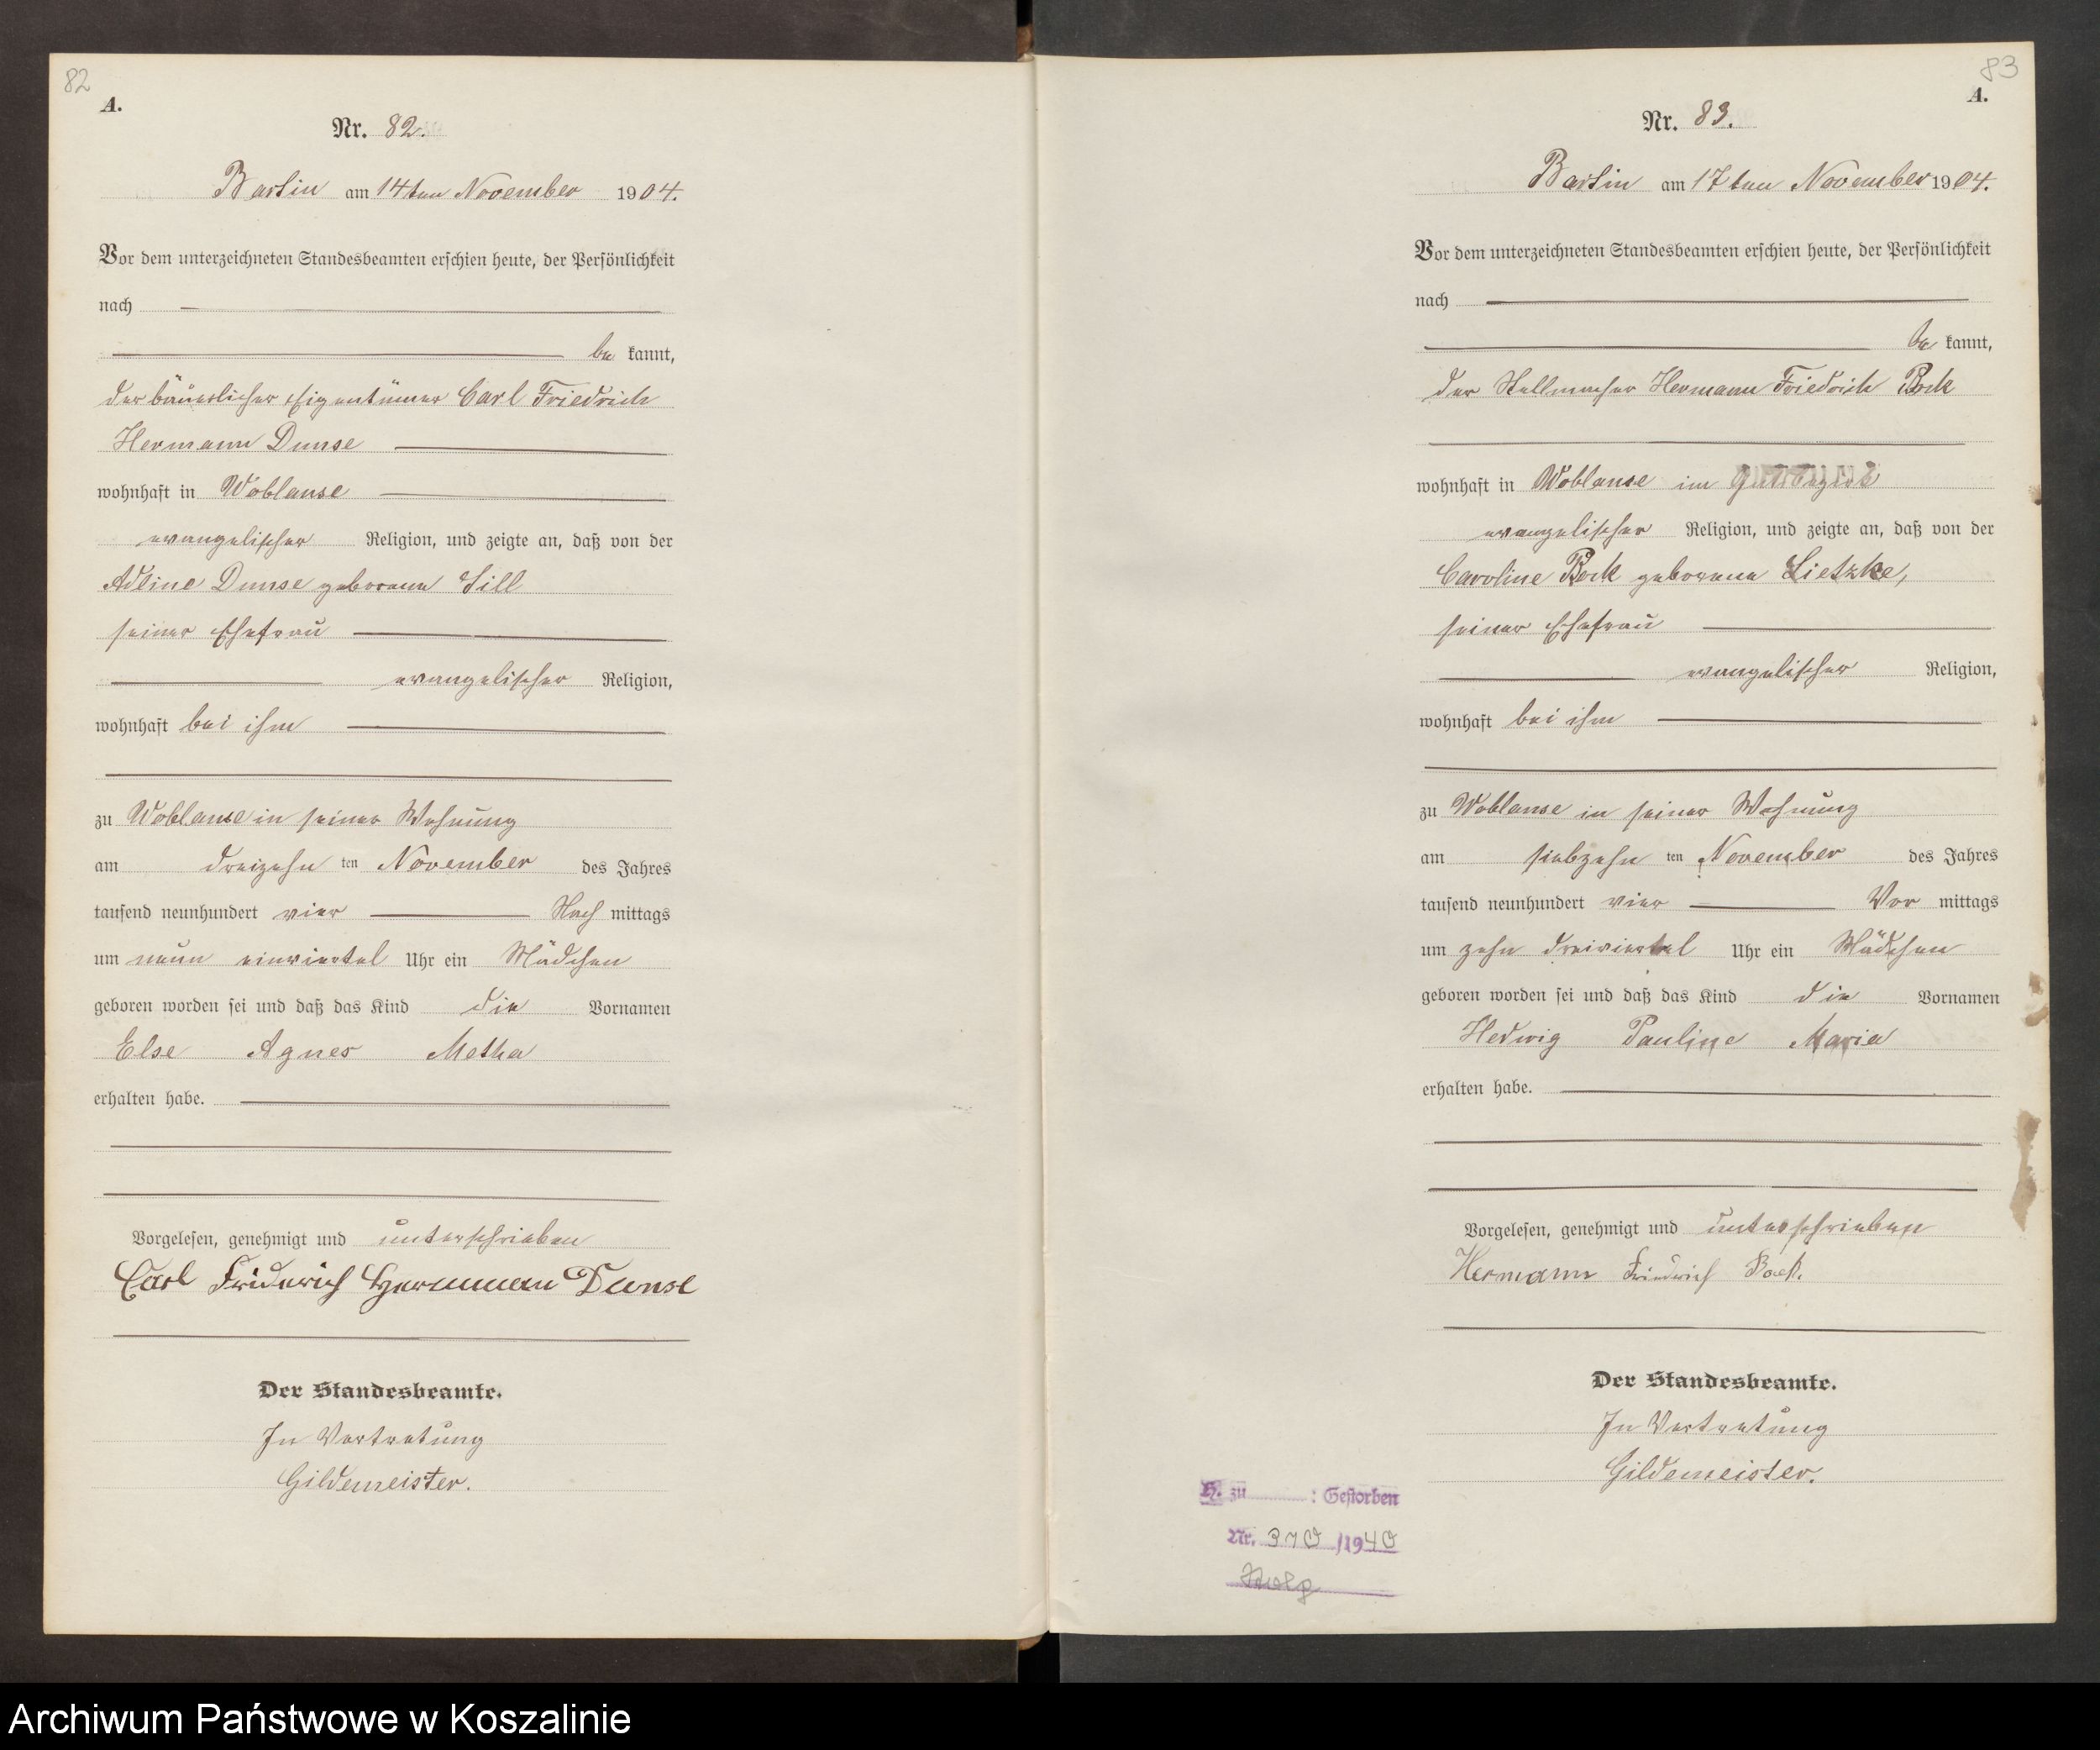 82
A.
Nr. 82.
Bartin am 14ten November 1904.
Vor dem unterzeichneten Standesbeamten erschien heute, der Persönlichkeit
nach
be kannt,
der bäuerlicher Eigentümer Carl Friedrich
Hermann Dunse
wohnhaft in Woblanse
evangelischer Religion, und zeigte an, daß von der
Adline Dunse geborene Sill
seiner Ehefrau
evangelischer Religion,
wohnhaft bei ihm
zu Woblanse in seiner Wohnung
am dreizehn ten November des Jahres
tausend neunhundert vier Nach mittags
um neun einviertel Uhr ein Mädchen
geboren worden sei und daß das Kind die Vornamen
Else Agnes Metha
erhalten habe.
Vorgelesen, genehmigt und unterschrieben
Carl Friderich Hermman Dunse
Der Standesbeamte.
In Vertretung
Gildemeister.
83
A.
Nr. 83.
Bartin am 17ten November 1904.
Vor dem unterzeichneten Standesbeamten erschien heute, der Persönlichkeit
nach
be kannt,
der Stellmacher Hermann Friedrich Bock
wohnhaft in Woblanse im Gutsbezirk
evangelischer Religion, und zeigte an, daß von der
Caroline Bock geborene Lietzke,
seiner Ehefrau
evangelischer Religion,
wohnhaft bei ihm
zu Woblanse in seiner Wohnung
am siebzehn ten November des Jahres
tausend neunhundert vier Vor mittags
um zehn dreiviertel Uhr ein Mädchen
geboren worden sei und daß das Kind die Vornamen
Hedwig Pauline Maria
erhalten habe.
Vorgelesen, genehmigt und unterschrieben
Hermann Friedrich Bock.
Der Standesbeamte.
In Vertretung
Gildemeister.
H. zu : Gestorben
Nr. 370 /1940
Archiwum Państwowe w Koszalinie